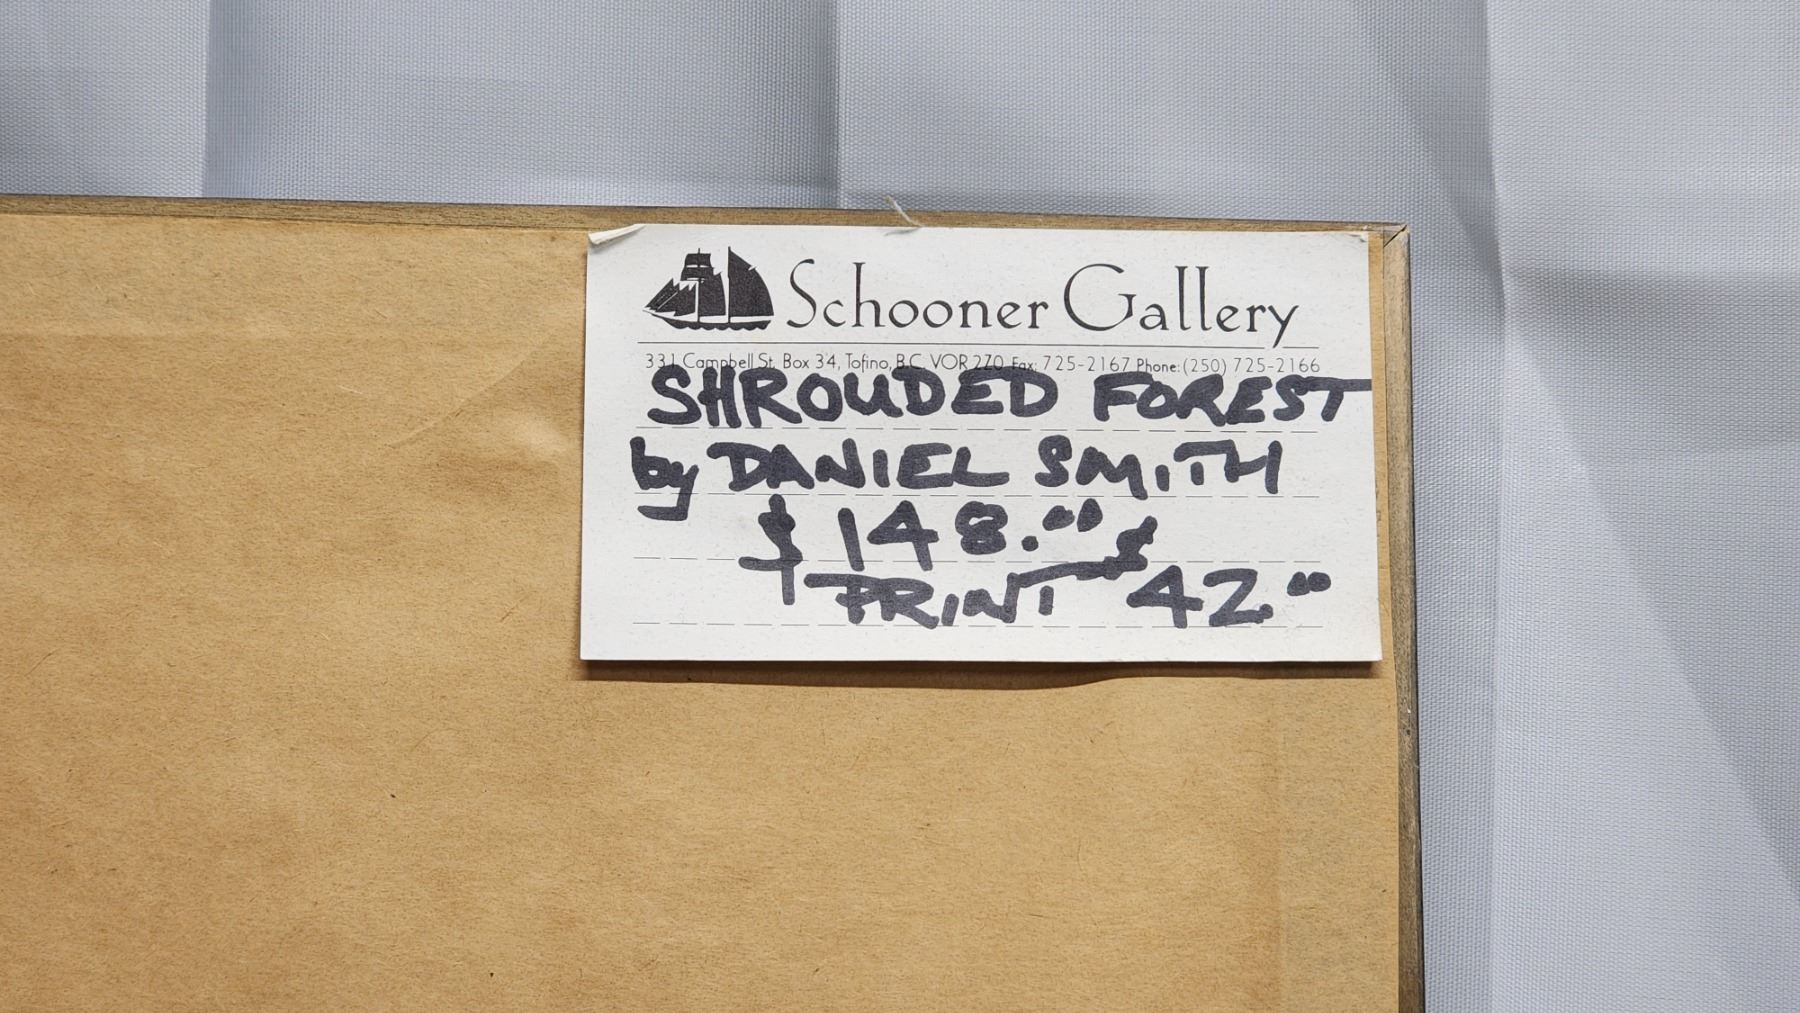 Schooner Gallery
331 Campbell St. Box 34, Tofino, B.C. VOR 2Z0 Fax: 725-2167 Phone: (250) 725-2166
SHROUDED FOREST
by DANIEL SMITH
$ 148.00
PRINT $ 42.00